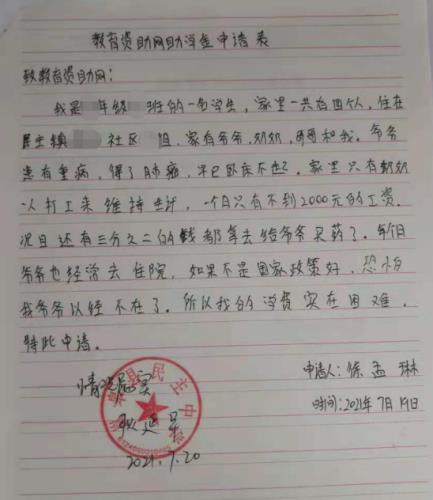 教育资助网助学金申请表
致教育资助网:
我是 年级 班的一名学生,家里一共有四个人,住在
民主镇 社区 组,家有爷爷,奶奶,哥哥和我。爷爷
患有重病,得了肺癌,早已卧床不起。家里只有奶奶
一人打工来维持生计,一个月只有不到2000元的工资。
况且还有三分之二的钱都拿去给爷爷买药了。每个月
爷爷也经常去住院,如果不是国家政策好,恐怕
我爷爷以经不在了。所以我的学费实在困难,
特此申请。
申请人:徐孟琳
时间:2021年7月19日
情况属实
2021.7.20
县民主中学